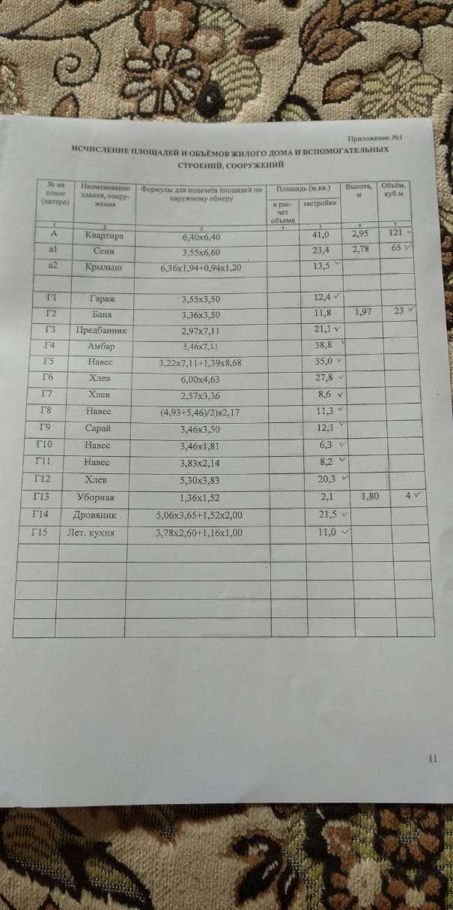 Приложение №3
ИСЧИСЛЕНИЕ ПЛОЩАДЕЙ И ОБЪЁМОВ ЖИЛОГО ДОМА И ВСПОМОГАТЕЛЬНЫХ
СТРОЕНИЙ, СООРУЖЕНИЙ
№ на плане (литера) Наименование здания, соору- жения Формулы для подсчета площадей по наружному обмеру Площадь (м.кв.) Высота, м Объём, куб.м
в рас- чет объема застройки
1 2 3 4 5 6
А Квартира 6,40х6,40 41,0 2,95 121
а1 Сени 3,55х6,60 23,4 2,78 65
а2 Крыльцо 6,36х1,94+0,94х1,20 13,5
Г1 Гараж 3,55х3,50 12,4
Г2 Баня 3,36х3,50 11,8 1,97 23
Г3 Предбанник 2,97х7,11 21,1
Г4 Амбар 5,46х7,11 38,8
Г5 Навес 3,22х7,11+1,39х8,68 35,0
Г6 Хлев 6,00х4,63 27,8
Г7 Хлев 2,57х3,36 8,6
Г8 Навес (4,93+5,46)/2)х2,17 11,3
Г9 Сарай 3,46х3,50 12,1
Г10 Навес 3,46х1,81 6,3
Г11 Навес 3,83х2,14 8,2
Г12 Хлев 5,30х3,83 20,3
Г13 Уборная 1,36х1,52 2,1 1,80 4
Г14 Дровяник 5,06х3,65+1,52х2,00 21,5
Г15 Лет. кухня 3,78х2,60+1,16х1,00 11,0
11